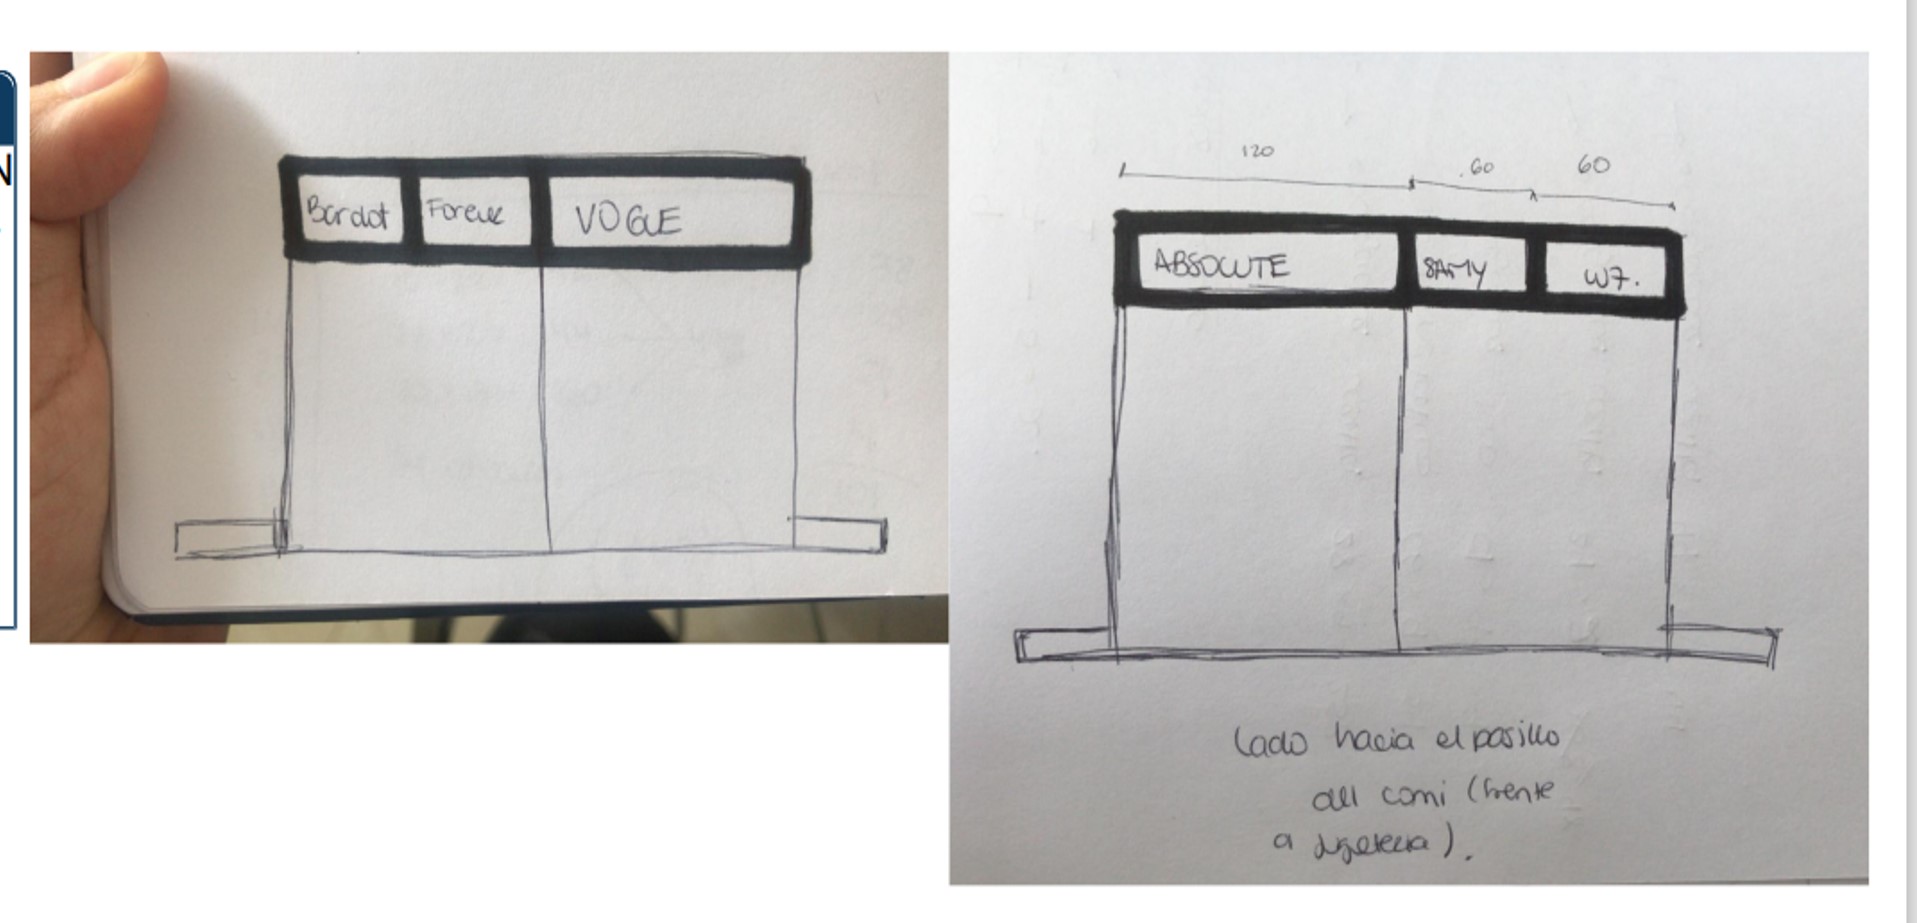 N
Bardot
Foreve
VOGUE
120
.60
60
ABSOLUTE
SAMY
W7.
Lado hacia el pasillo
del comi (frente
a Jugeteria).